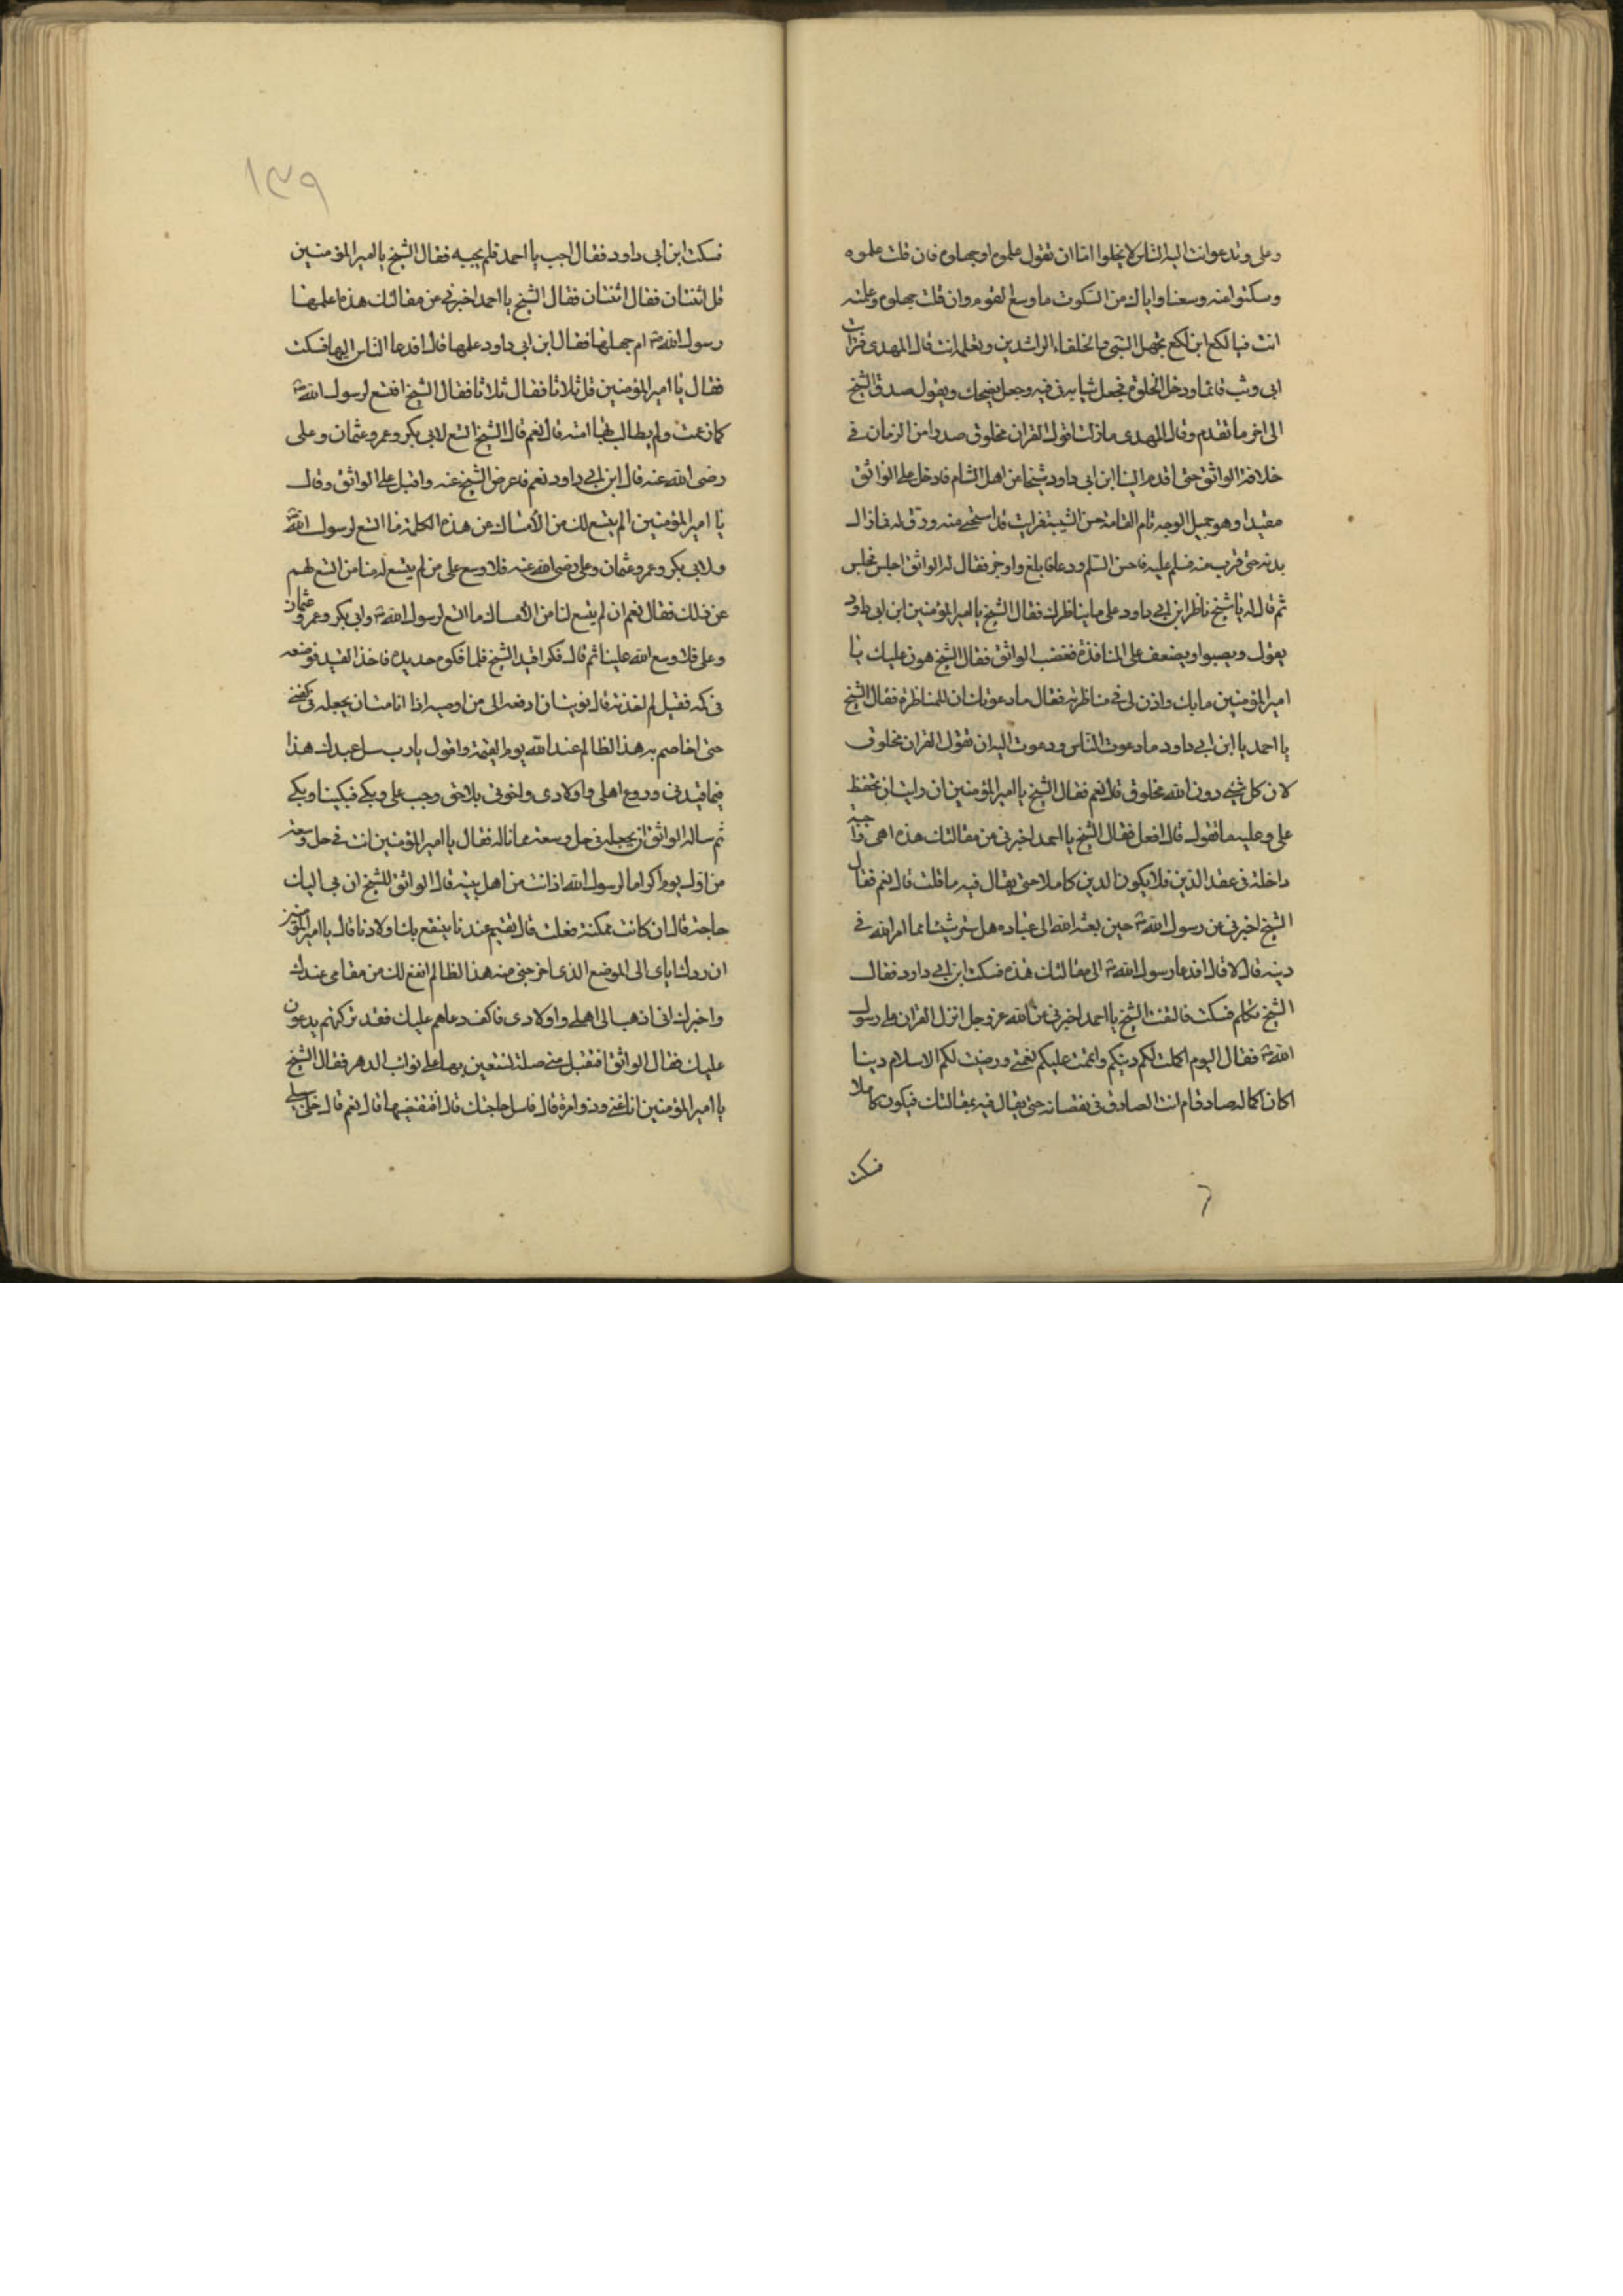 وعلى وتدعو انت اليه الناس لا يخلوا اما ان تقول علموه او جهلوه فان قلت علموه
وسكتوا عنه وسعنا واياك من السكوت ما وسع القوم وان قلت جهلوه وعلمته
انت فيا لكع ابن لكع يجهل النبي والخلفاء الراشدين وتعلم انت قال المهدى فرايت
ابى وثب قائما ودخل الخلوة فجعل ثيابه في فيه وجعل يضحك ويقول صدق الشيخ
الى اخر ما تقدم وقال المهدى ما زلت اقول القران مخلوق صدرا من الزمان في
خلافة الواثق حتى اقدم الينا ابن ابى داود شيخا من اهل الشام فادخل على الواثق
مقيدا وهو جميل الوجه تام القامة حسن الشيبة فرايت قد استحيى منه ورق له فما زال
يدنه حتى قرب منه فسلم عليه فاحسن السلم ودعا فابلغ واوجز فقال له الواثق اجلس فجلس
ثم قال له يا شيخ ناظر ابن ابى داود على ما يناظرك فقال الشيخ يا امير المؤمنين ابن ابى داود
يقول ويصبوا ويضعف على المناظرة فغضب الواثق فقال الشيخ هون عليك يا
امير المؤمنين ما بك واذن لى في مناظرته فقال ما دعوناك الا للمناظرة فقال الشيخ
يا احمد يا ابن ابى داود ما دعوت الناس ودعوت اليه ان تقول القران مخلوق
لان كل شئ دون الله مخلوق قال نعم فقال الشيخ يا امير المؤمنين ان رايت ان تحفظ
على وعليه ما نقول قال افعل فقال الشيخ يا احمد اخبرنى عن مقالتك هذه اهى واجبة
داخلة في عقد الدين فلا يكون الدين كاملا حتى يقال فيه ما قلت قال نعم فقال
الشيخ اخبرنى عن رسول الله حين بعثه الله الى عباده هل ستر شيئا مما امر الله في
دينه قال لا قال افدعا رسول الله الى مقالتك هذه فسكت ابن ابى داود فقال
الشيخ تكلم فسكت فالتفت الشيخ يا احمد اخبرنى عن الله عز وجل انزل القران على رسول
الله فقال اليوم اكملت لكم دينكم واتممت عليكم نعمتى ورضيت لكم الاسلام دينا
اكان اكماله صادقا ام انت الصادق في نقصانه حتى يقال فيه بمقالتك فيكون كاملا
فسكت
١٣٩
فسكت ابن ابى داود فقال اجب يا احمد فلم يجيبه فقال الشيخ يا امير المؤمنين
قل اثنتان فقال اثنتان فقال الشيخ يا احمد اخبرنى عن مقالتك هذه اعلمها
رسول الله ام جهلها فقال ابن ابى داود علمها قال افدعا الناس اليها فسكت
فقال يا امير المؤمنين قل ثلاثا فقال ثلاثا فقال الشيخ افتسع لرسول الله
كما زعمت ولم يطالب بها امته قال نعم قال الشيخ اتسع لابى بكر وعمر وعثمان وعلى
رضى الله عنه قال ابن ابى داود نعم فاعرض الشيخ عنه واقبل على الواثق وقال
يا امير المؤمنين الم يتسع لك من الأمساك عن هذه الكلمة ما اتسع لرسول الله
ولابى بكر وعمر وعثمان وعلى رضى الله عنه فلا وسع على من لم يتسع له منا من اتسع لهم
عن ذلك فقال نعم ان لم يتسع لنا من الأمساك ما اتسع لرسول الله وابى بكر وعمر وعثمان
وعلى فلا وسع الله علينا ثم قال فكوا قيد الشيخ فلما فكوه حديده فاخذ القيد فوضعه
في كمه فقيل لم اخذته قال نويت ان ادفعه الى من اوصيه اذا انا مت ان يجعله في كفنى
حتى اخاصم به هذا الظالم عند الله يوم القيمة واقول يا رب سل عبدك هذا
فيما قيدنى وروع اهلى واولادى واخوتى بلا حق وجب على وبكى فبكينا وبكى
ثم ساله الواثق ان يجعله في حل وسعة مما ناله فقال يا امير المؤمنين انت في حل وسعة
من اول يوم اكراما لرسول الله اذ انت من اهل بيته قال الواثق للشيخ ان لى اليك
حاجة قال ان كانت ممكنة فعلت قال تقيم عندنا ينتفع بك اولادنا قال يا امير المؤمنين
ان ردك اياى الى الموضع الذى اخرجنى منه هذا الظالم انفع لك من مقامى عندك
واخبرك انى اذهب الى اهلى واولادى فاكف دعاهم عليك فقد تركتهم يدعون
عليك فقال الواثق افتقبل منى صلة تستعين بها على نوائب الدهر فقال الشيخ
يا امير المؤمنين انا غنى وذو امرة قال فاسل حاجتك قال افتقضيها قال نعم قال خل سبيلى